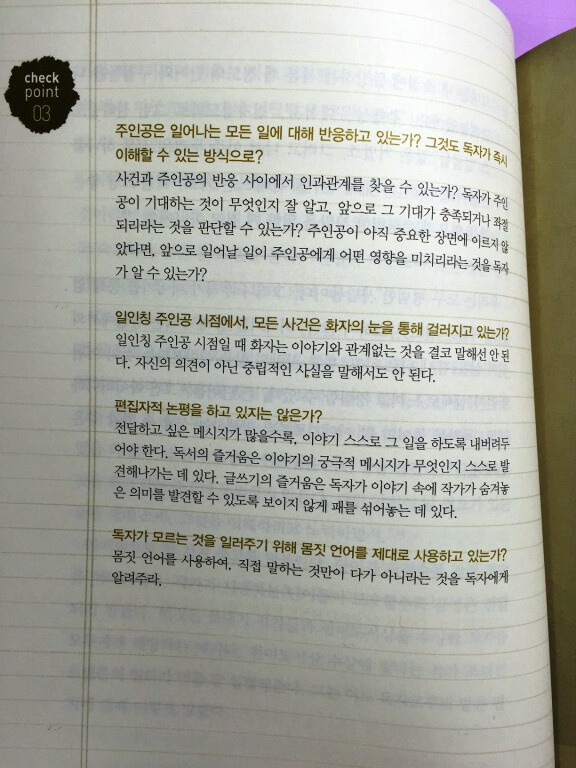 check
point
03
주인공은 일어나는 모든 일에 대해 반응하고 있는가? 그것도 독자가 즉시
이해할 수 있는 방식으로?
사건과 주인공의 반응 사이에서 인과관계를 찾을 수 있는가? 독자가 주인
공이 기대하는 것이 무엇인지 잘 알고, 앞으로 그 기대가 충족되거나 좌절
되리라는 것을 판단할 수 있는가? 주인공이 아직 중요한 장면에 이르지 않
았다면, 앞으로 일어날 일이 주인공에게 어떤 영향을 미치리라는 것을 독자
가 알 수 있는가?
일인칭 주인공 시점에서, 모든 사건은 화자의 눈을 통해 걸러지고 있는가?
일인칭 주인공 시점일 때 화자는 이야기와 관계없는 것을 결코 말해선 안 된
다. 자신의 의견이 아닌 중립적인 사실을 말해서도 안 된다.
편집자적 논평을 하고 있지는 않은가?
전달하고 싶은 메시지가 많을수록, 이야기 스스로 그 일을 하도록 내버려두
어야 한다. 독서의 즐거움은 이야기의 궁극적 메시지가 무엇인지 스스로 발
견해나가는 데 있다. 글쓰기의 즐거움은 독자가 이야기 속에 작가가 숨겨놓
은 의미를 발견할 수 있도록 보이지 않게 패를 섞어놓는 데 있다.
독자가 모르는 것을 일러주기 위해 몸짓 언어를 제대로 사용하고 있는가?
몸짓 언어를 사용하여, 직접 말하는 것만이 다가 아니라는 것을 독자에게
알려주라.